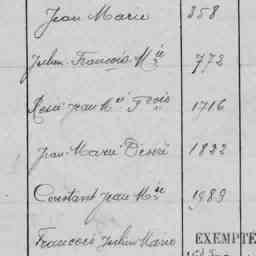 Jean Marie 358
Julien François Mie 772
René Jean Mie Frois 1716
Jean Marie Désiré 1822
Constant Jean Mie 1989
Francois Julien Marie EXEMPTÉ